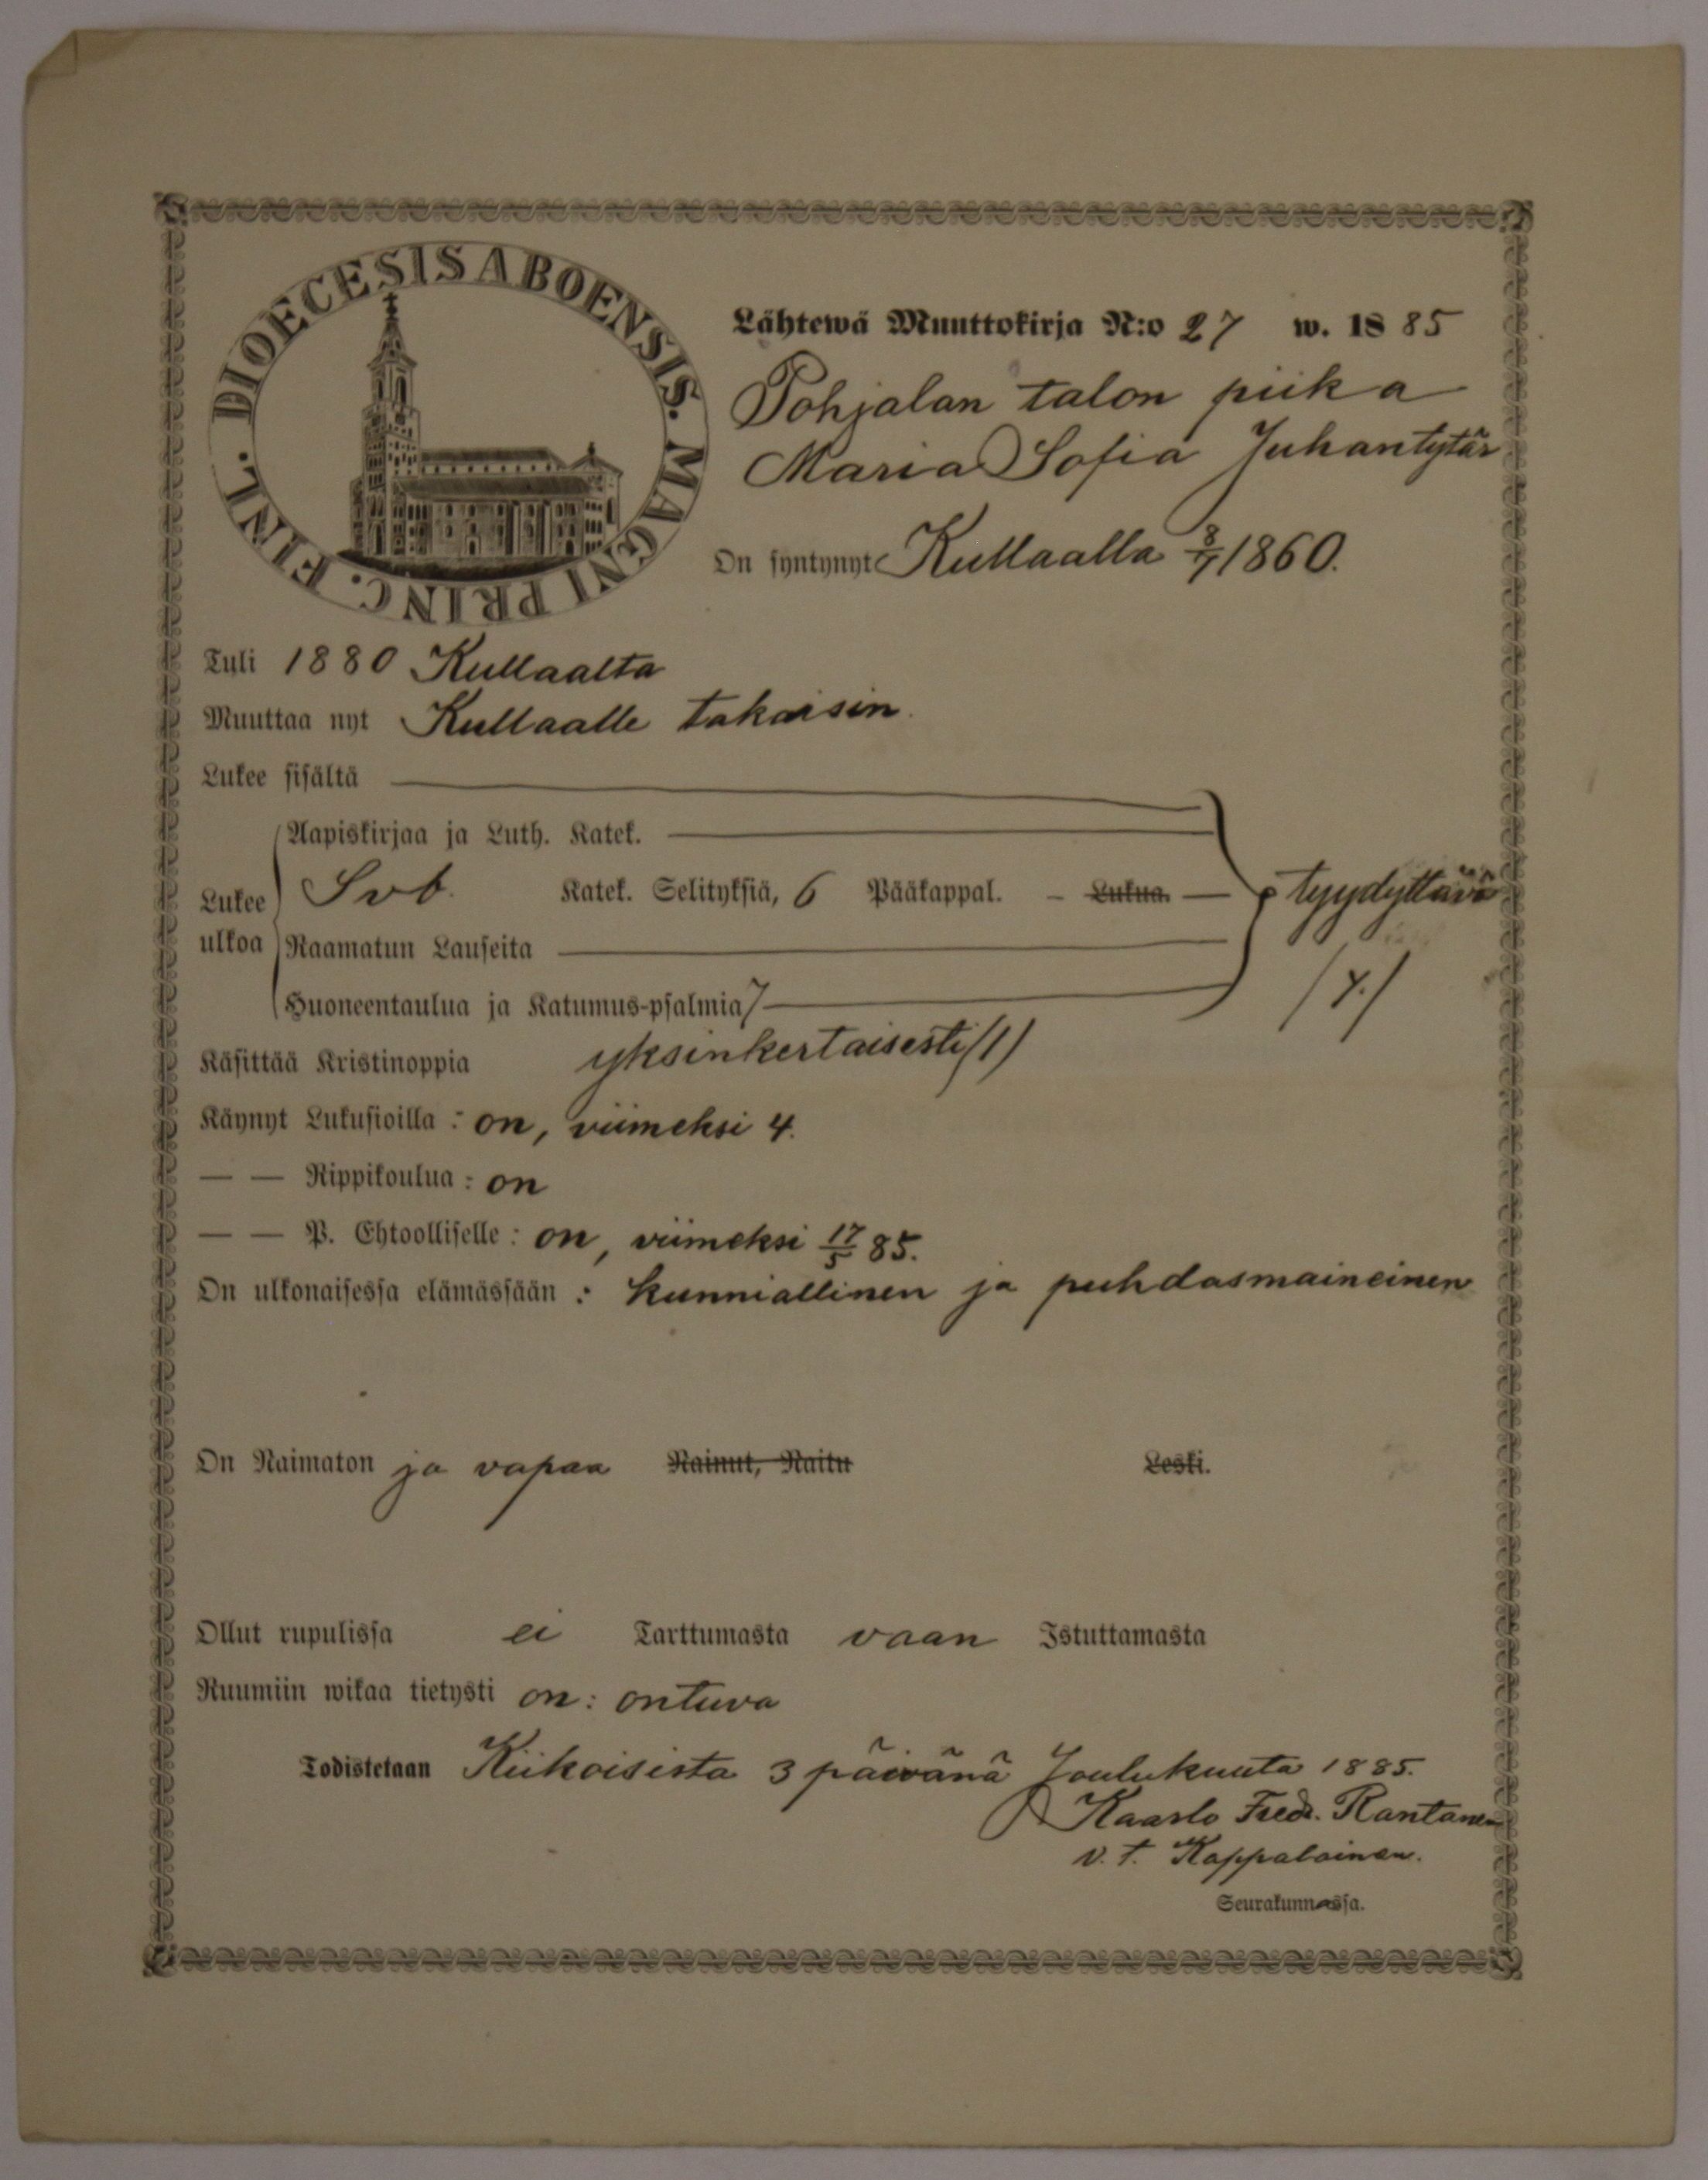 DIOECESIS ABOENSIS. MAGNI PRINC. FINL.
Lähtewä Muuttokirja N:o 27 w. 1885
Pohjalan talon piika
Maria Sofia Juhantytär
On syntynyt Kullaalla 8/7 1860.
Tuli 1880 Kullaalta
Muuttaa nyt Kullaalle takaisin.
Lukee sisältä
Aapiskirjaa ja Luth. Katek.
Lukee ulkoa Svb. Katek. Selityksiä, 6 Pääkappal. – Lukua. — tyydyttävä
Raamatun Lauseita
Huoneentaulua ja Katumus-psalmia
yksinkertaisesti /1/
Käsittää Kristinoppia
Käynyt Lukusioilla : on, viimeksi 4.
— — Rippikoulua : on
— — P. Ehtoolliselle : on, viimeksi 17/5 85.
On ulkonaisessa elämässään : kunniallinen ja puhdasmaineinen
On Naimaton ja vapaa Nainut, Naitu Leski.
Ollut rupulissa ei Tarttumasta vaan Istuttamasta
Ruumiin wikaa tietysti on: ontuva
Todistetaan Kiikoisista 3 päivänä Joulukuuta 1885.
Kaarlo Fredr. Rantanen
v. t. Kappalainen.
Seurakunnassa.